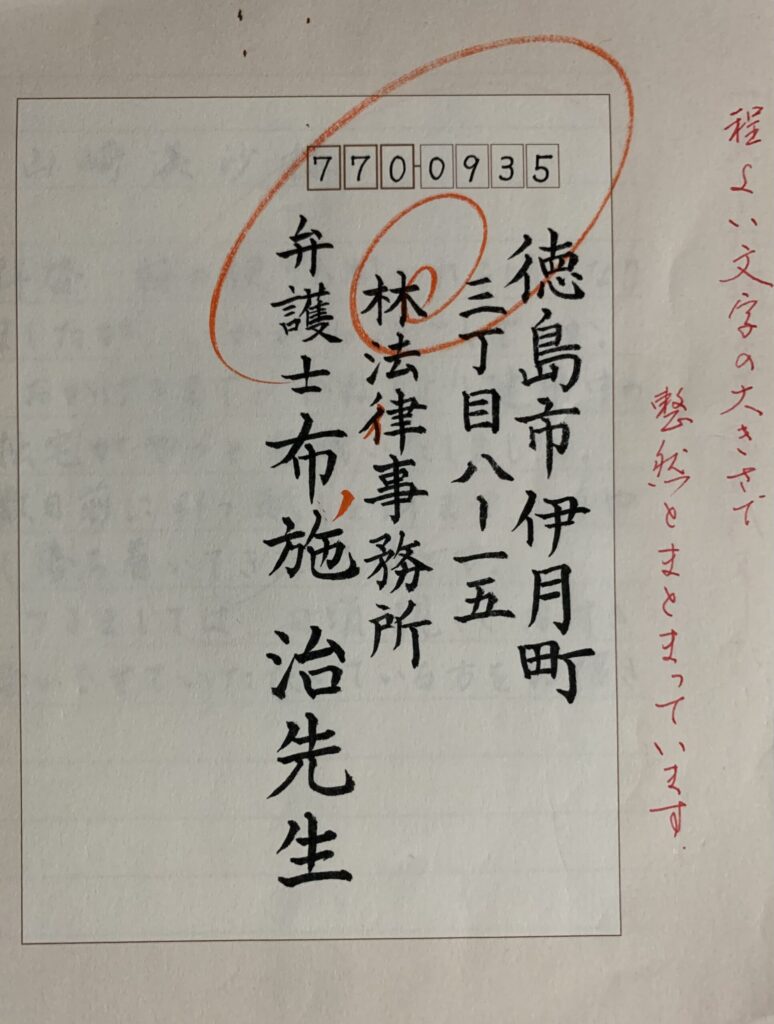 770-0935
徳島市伊月町
三丁目八ー一五
林法律事務所
弁護士布施 治先生
程よい文字の大きさで
整然とまとまっています